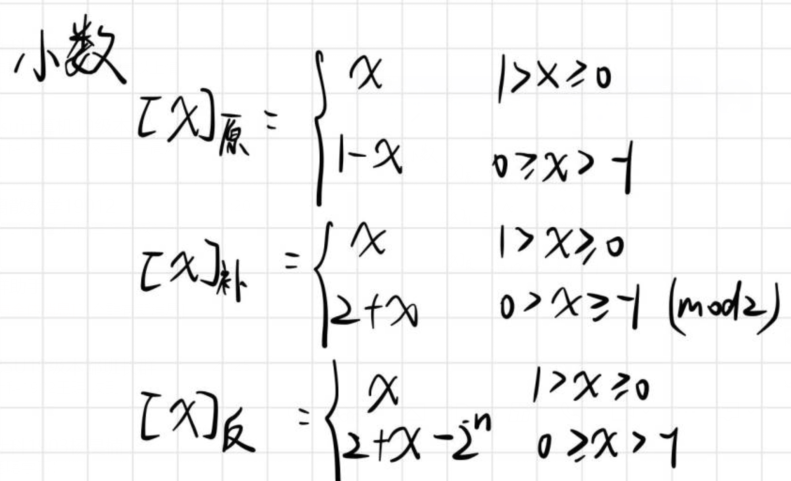 小数
[X]原 = { x 1>x≥0
1-x 0≥x>-1
[x]补 = { x 1>x≥0
2+x 0>x≥-1 (mod2)
[x]反 = { x 1>x≥0
2+x-2⁻ⁿ 0≥x>-1